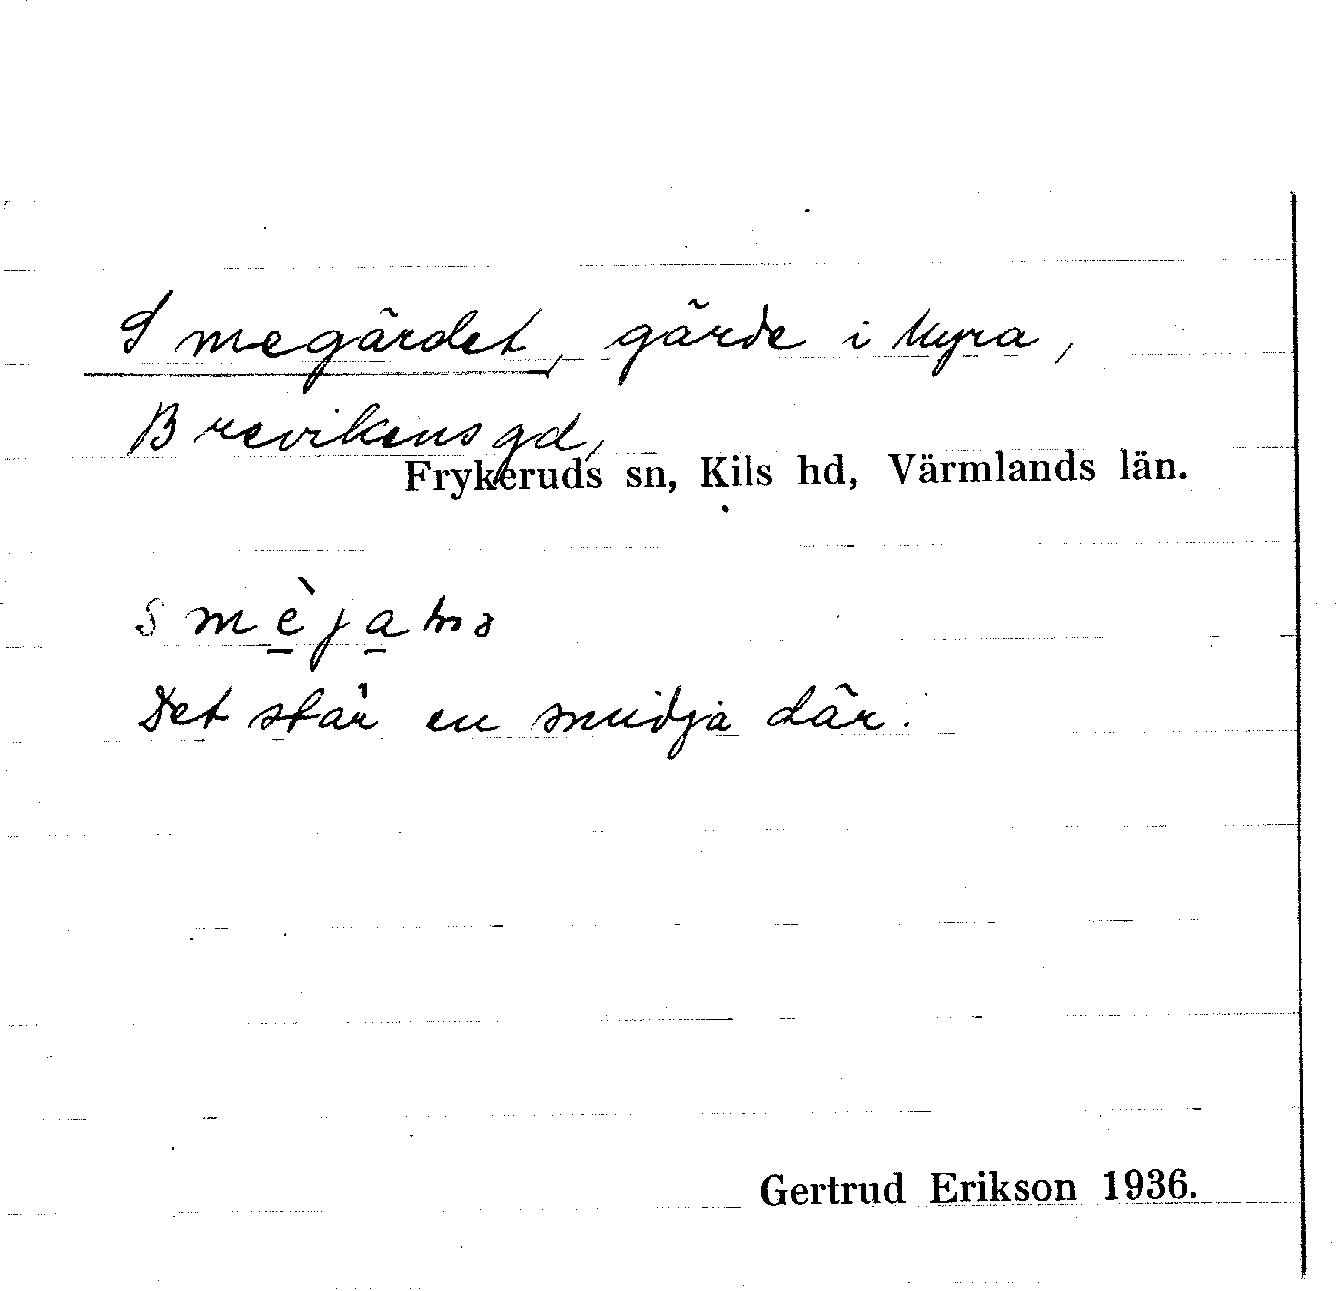 Smegärdet, gärde i Myra,
Brevikens gd,
Frykeruds sn, Kils hd, Värmlands län.
Det står en smidja där.
Gertrud Erikson 1936.